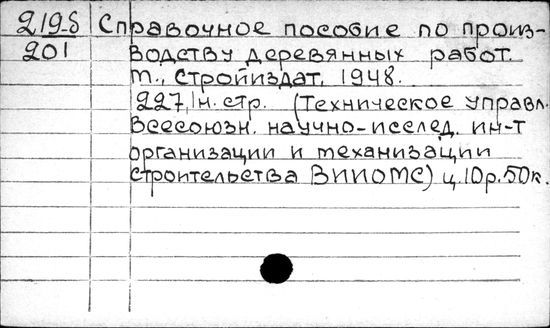 219-б Справочное пособие по произ-
201 водству деревянных работ.
М., Стройиздат, 1948.
227,1н. стр. (Техническое управл.
Всесоюзн. научно-исслед. ин-т
организации и механизации
строительства ВНИОМС) ц. 10р. 50к.